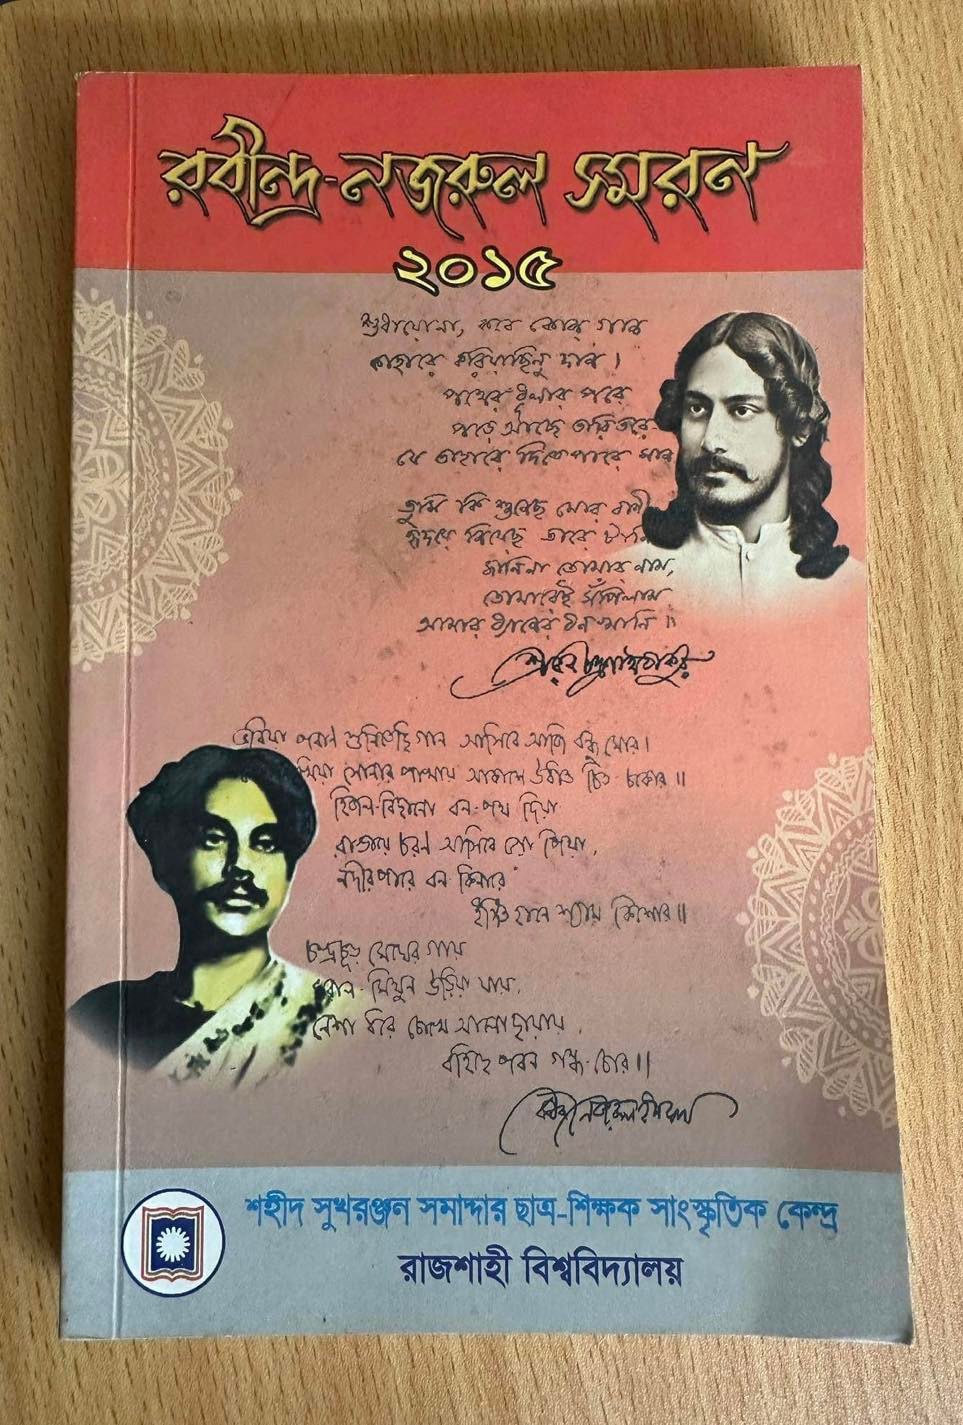 রবীন্দ্র-নজরুল স্মরন
২০১৫
শুধায়োনা, কবে কোন্ গান
কাহারে করিয়াছিনু দান।
পথের ধূলার পরে
পড়ে আছে তারি তরে
যে তাহারে দিতে পারে মান
তুমি কি শুনেছ মোর বাণী
হৃদয়ে নিয়েছ তারে টানি
জানিনা তোমার নাম,
তোমারেই সঁপিলাম
আমার ধ্যানের ধন-খানি॥
শ্রীরবীন্দ্রনাথ ঠাকুর
ভরিয়া পরান শুনিতেছি গান আসিবে আজি বন্ধু মোর।
সোনার পাখায় আকাশে উধাও চিত-চকোর॥
হিজল-বিছানো বন-পথ দিয়া
রাঙায়ে চরণ আসিবে গো পিয়া,
নদীর পারে বন কিনারে
ইঙ্গিত হানে শ্যাম কিশোর॥
চন্দ্রচূড় মেঘের গায়
মরাল-মিথুন উড়িয়া যায়,
নেশা ধরে চোখে আলোছায়ায়
বহিছে পবন গন্ধ-চোর॥
কাজী নজরুল ইসলাম
শহীদ সুখরঞ্জন সমাদ্দার ছাত্র-শিক্ষক সাংস্কৃতিক কেন্দ্র
রাজশাহী বিশ্ববিদ্যালয়